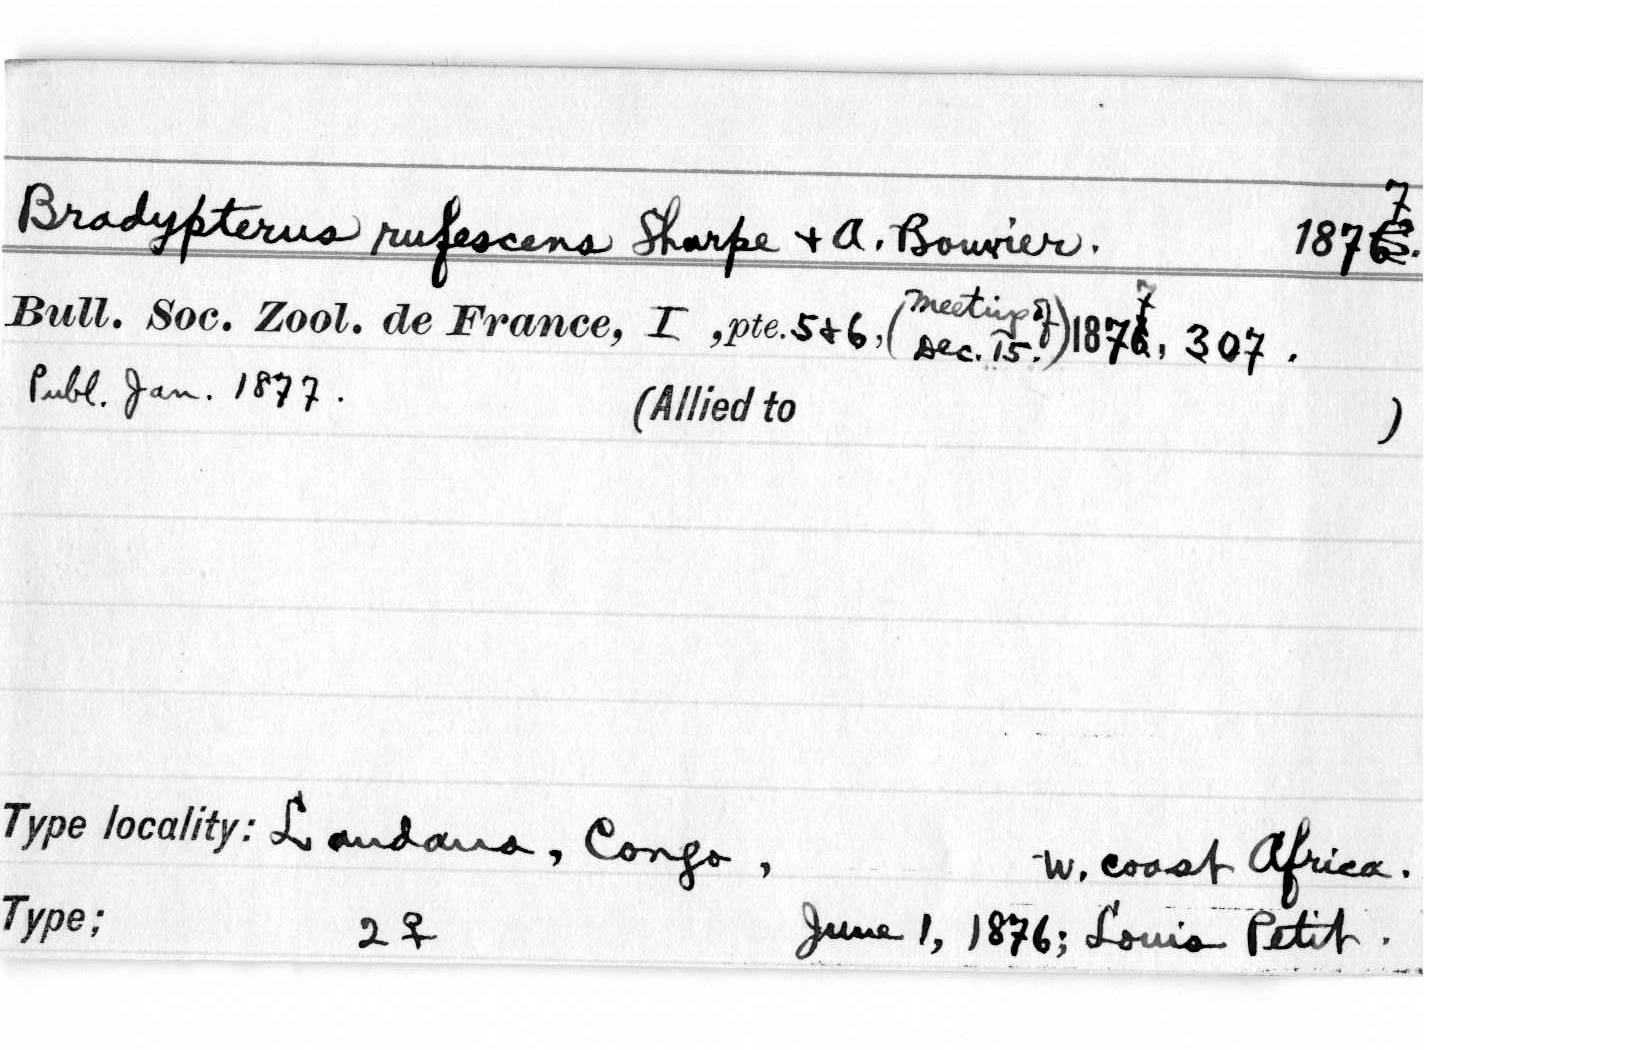 Bradypterus rufescens Sharpe + A. Bouvier. 1877.
Bull. Soc. Zool. de France, I, pte. 5+6, (meeting of Dec. 15.) 1877, 307.
Publ. Jan. 1877. (Allied to )
Type locality: Landana, Congo, W. coast Africa.
Type; 2 ♀ June 1, 1876; Louis Petit.